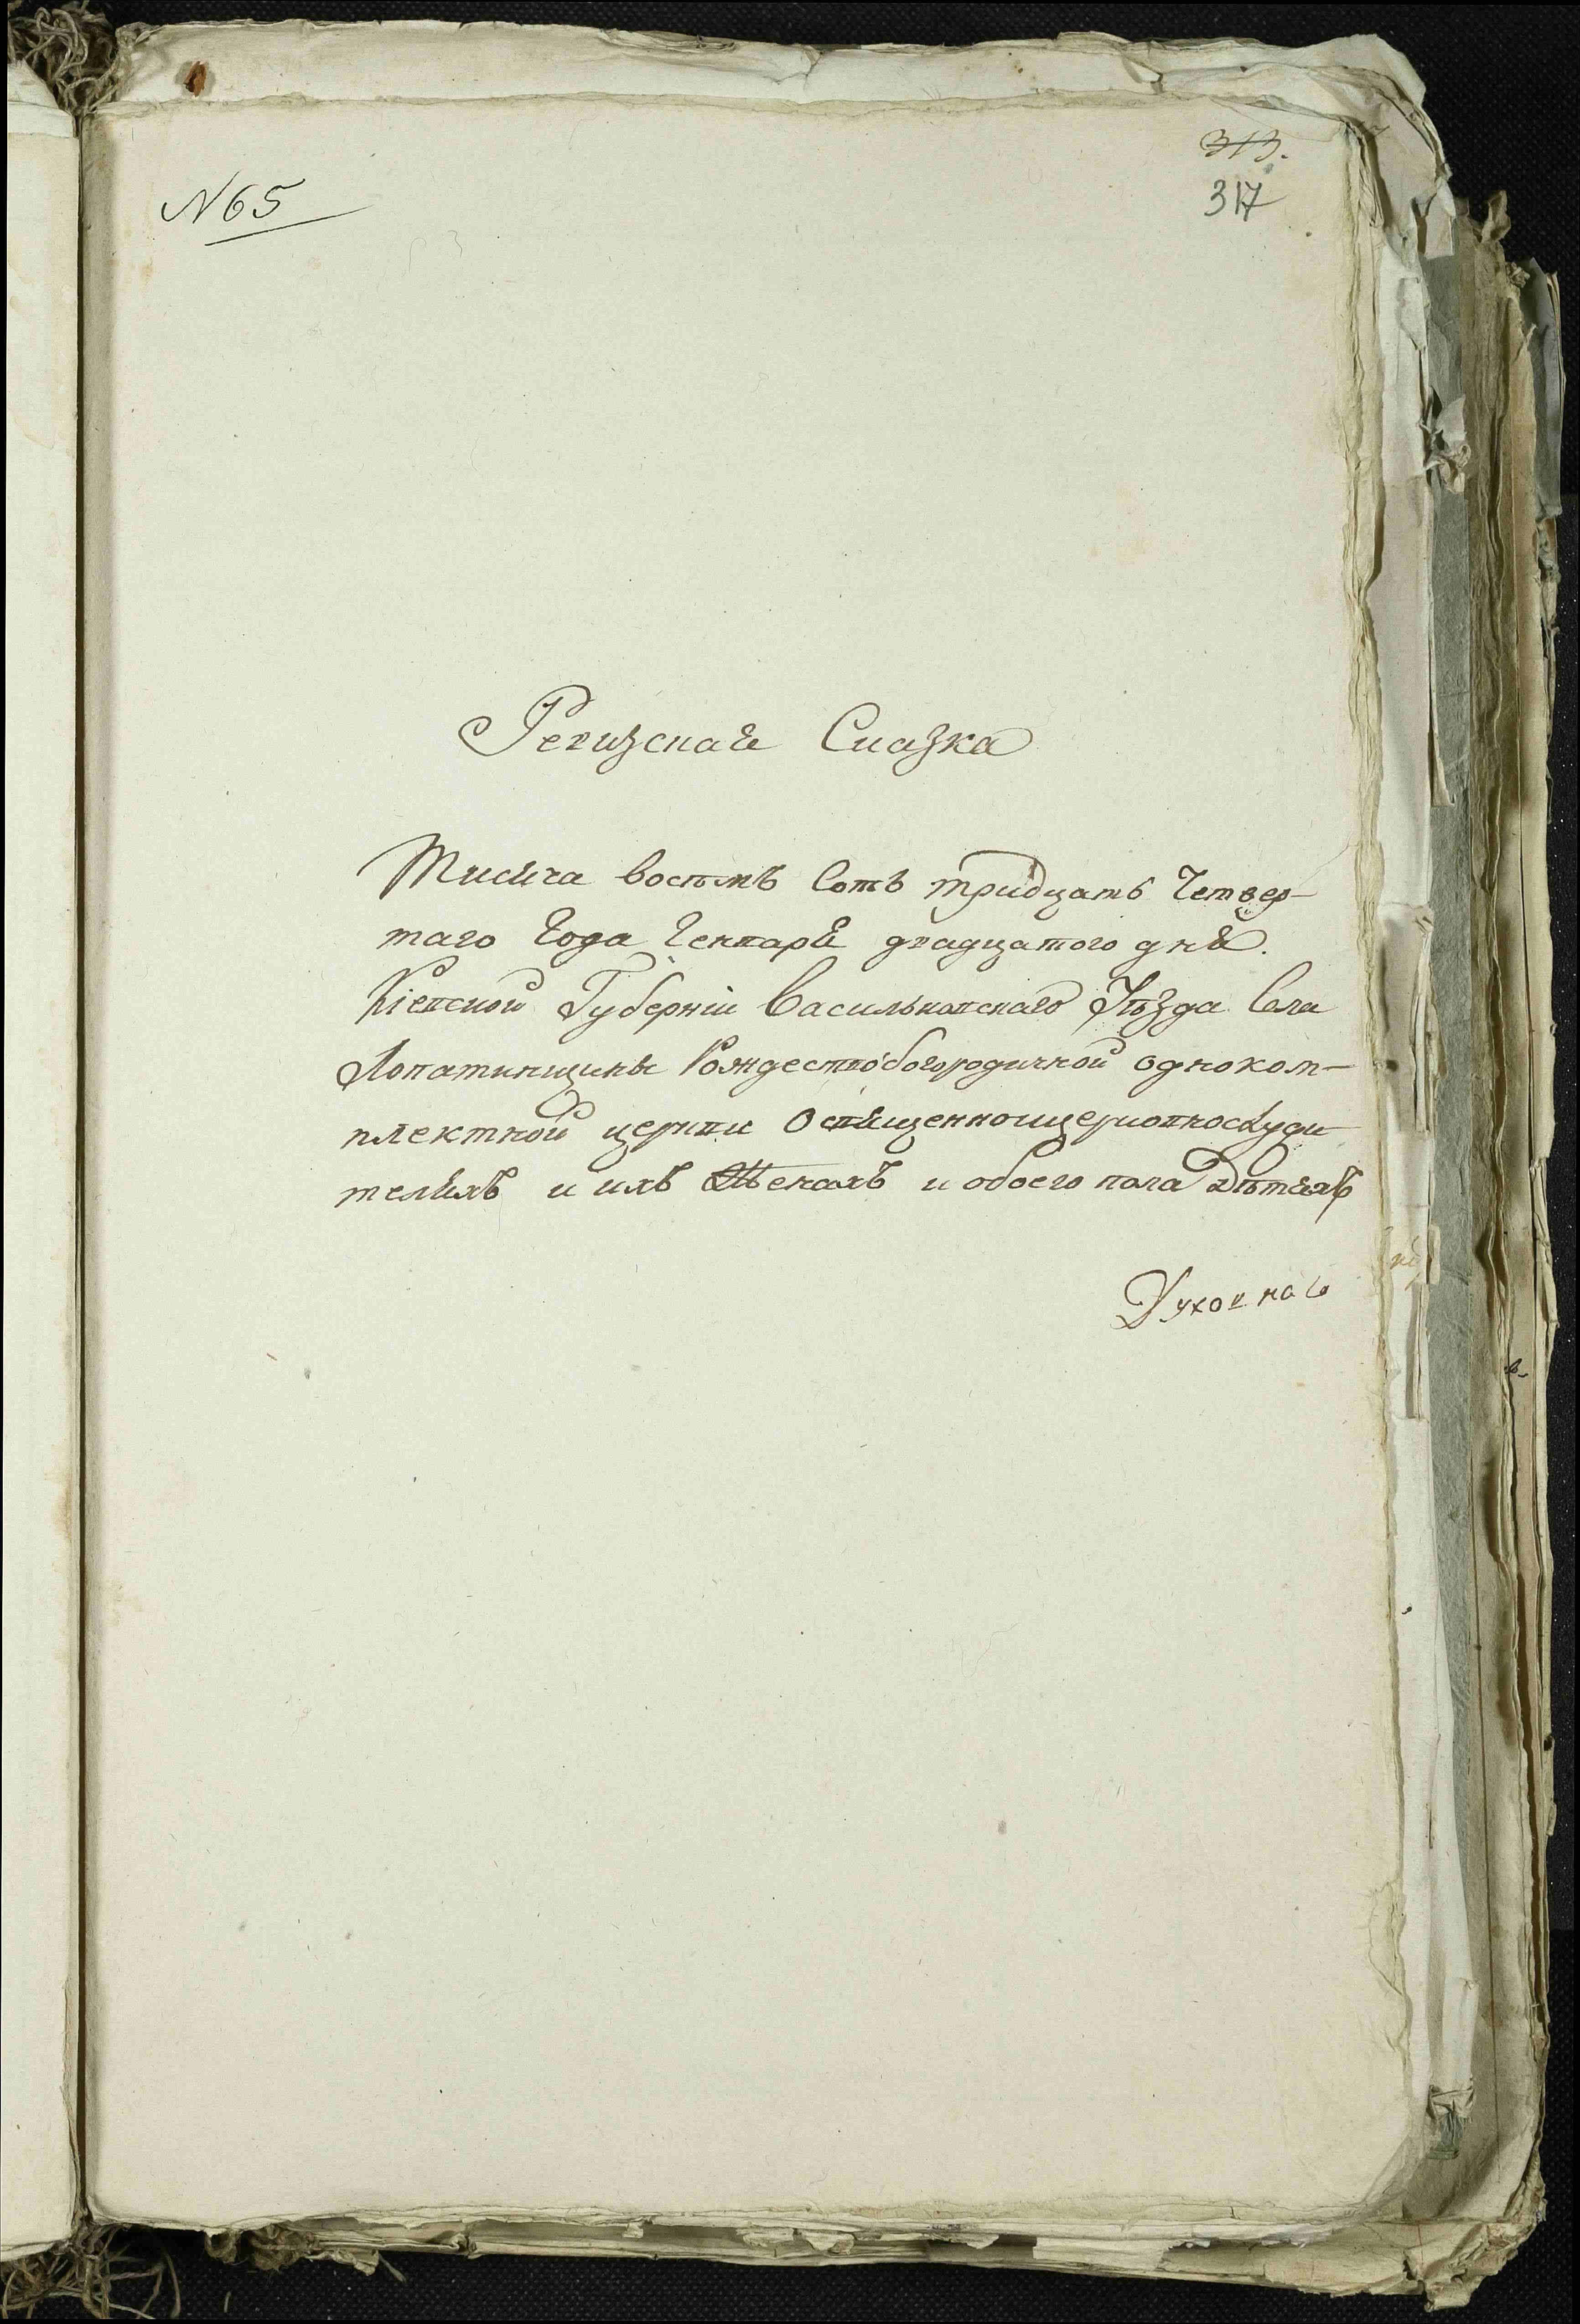 313.
317
N 65
Ревизская Сказка
Тисяча восѣмъ Сотъ тридцать Четвер-
таго Года Генваря двадцатого дня.
Кіевской Губерніи Васильковскаго Уѣзда Села
Лопатинщины Рождествобогородичной одноком-
плектной церкви О священноицерковнослужи
теляхъ и ихъ Женахъ и обоего пола Дѣтяхъ
Духовнаго